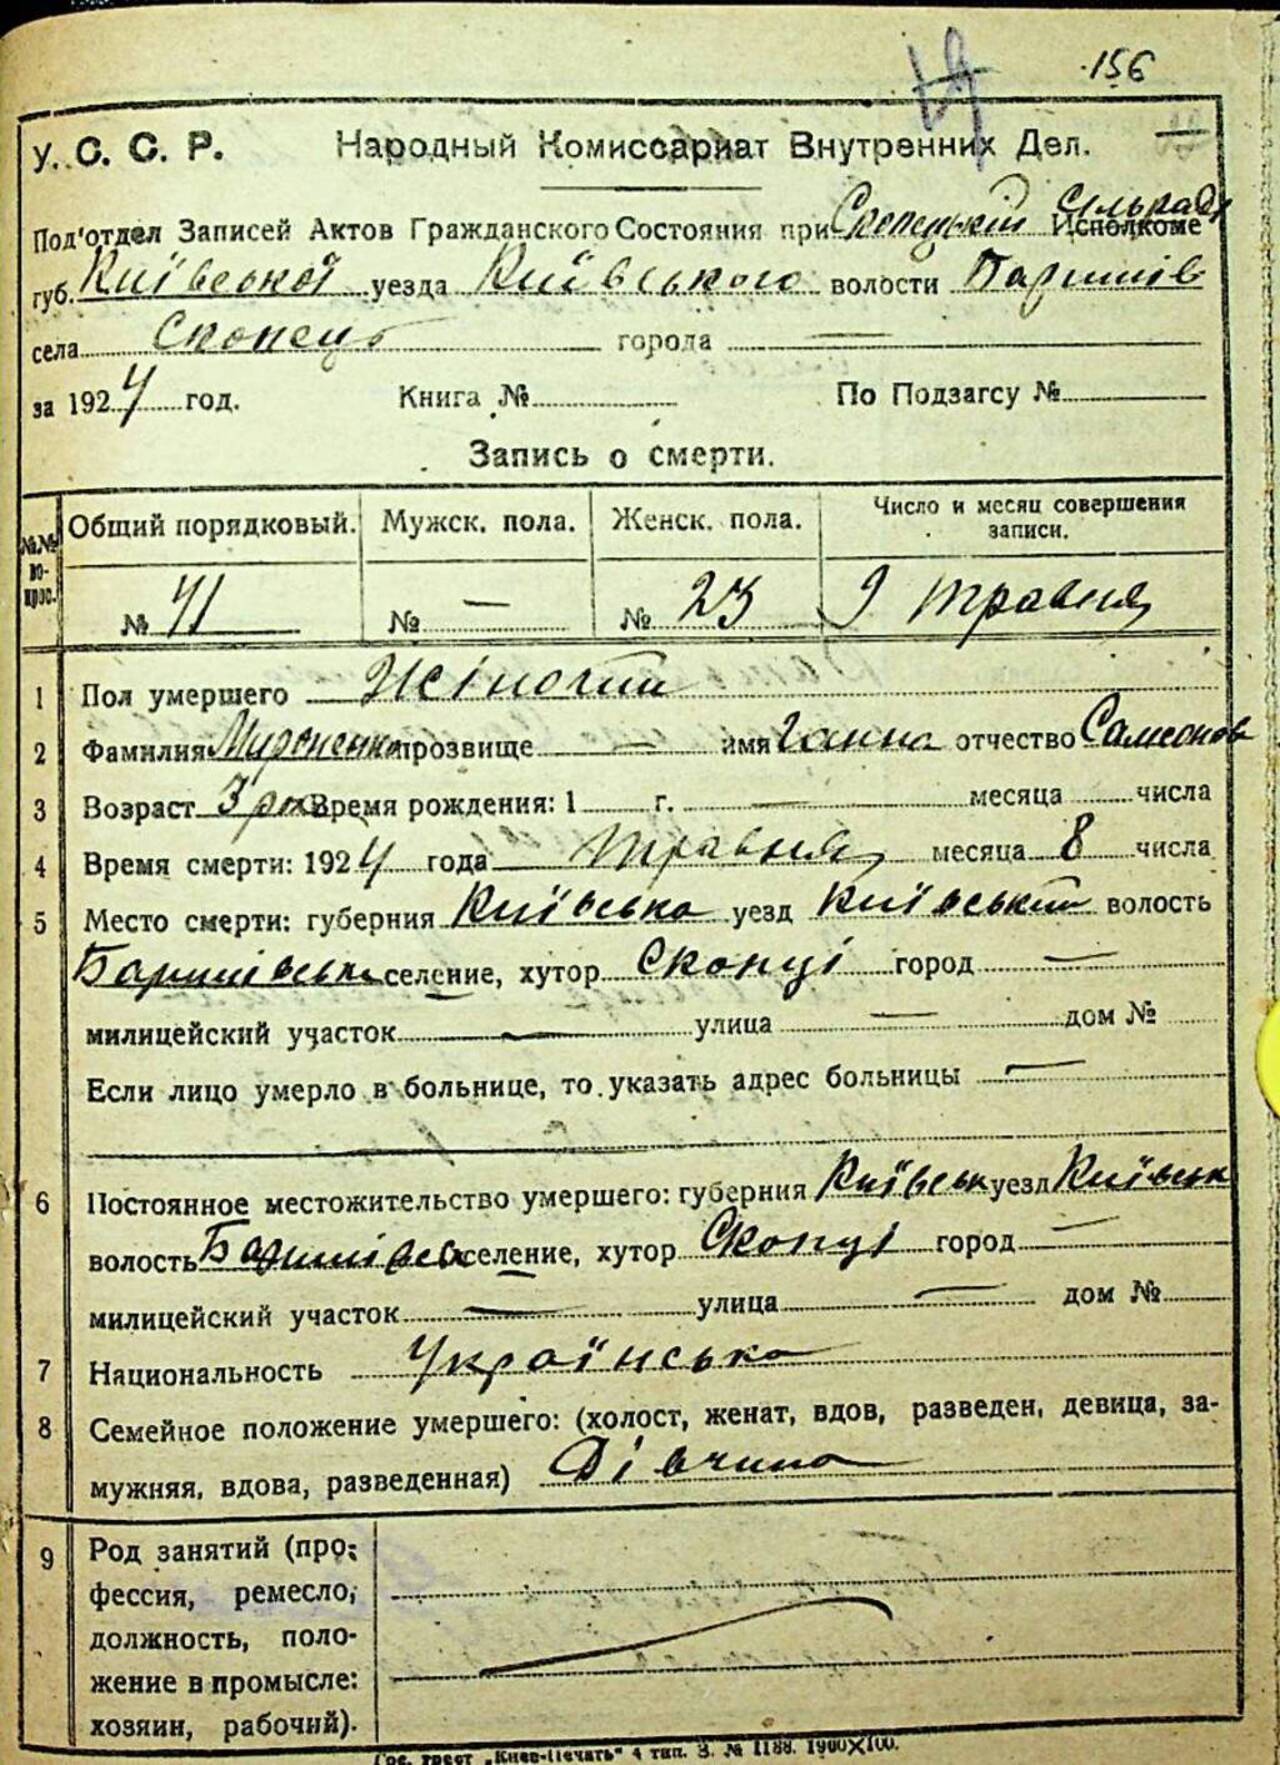 156
У. С. С. Р. Народный Комиссариат Внутренних Дел.
Под'отдел Записей Актов Гражданского Состояния при Скопецькій Сільраді Исполкоме
губ. Київської уезда Київського волости Баришів
села Скопець города —
за 1924 год. Книга № По Подзагсу №
Запись о смерти.
№№ во-прос. Общий порядковый. Мужск. пола. Женск. пола. Число и месяц совершения записи.
№ 41 № — № 23 9 травня
1 Пол умершего Жіночий
2 Фамилия Мироненко прозвище — имя Ганна отчество Самсонов
3 Возраст 3 рок Время рождения: 1 г. — месяца числа
4 Время смерти: 1924 года травня месяца 8 числа
5 Место смерти: губерния Київська уезд Київський волость
Баришівськ селение, хутор Скопці город —
милицейский участок — улица — дом №
Если лицо умерло в больнице, то указать адрес больницы —
6 Постоянное местожительство умершего: губерния Київськ уезд Київськ
волость Баришівськ селение, хутор Скопці город —
милицейский участок — улица — дом №
7 Национальность Українська
8 Семейное положение умершего: (холост, женат, вдов, разведен, девица, за-
мужняя, вдова, разведенная) Дівчина
9 Род занятий (про-
фессия, ремесло,
должность, поло-
жение в промысле:
хозяин, рабочий).
Гос. трест „Киев-Печать" 4 тип. З. № 1188. 1900X100.